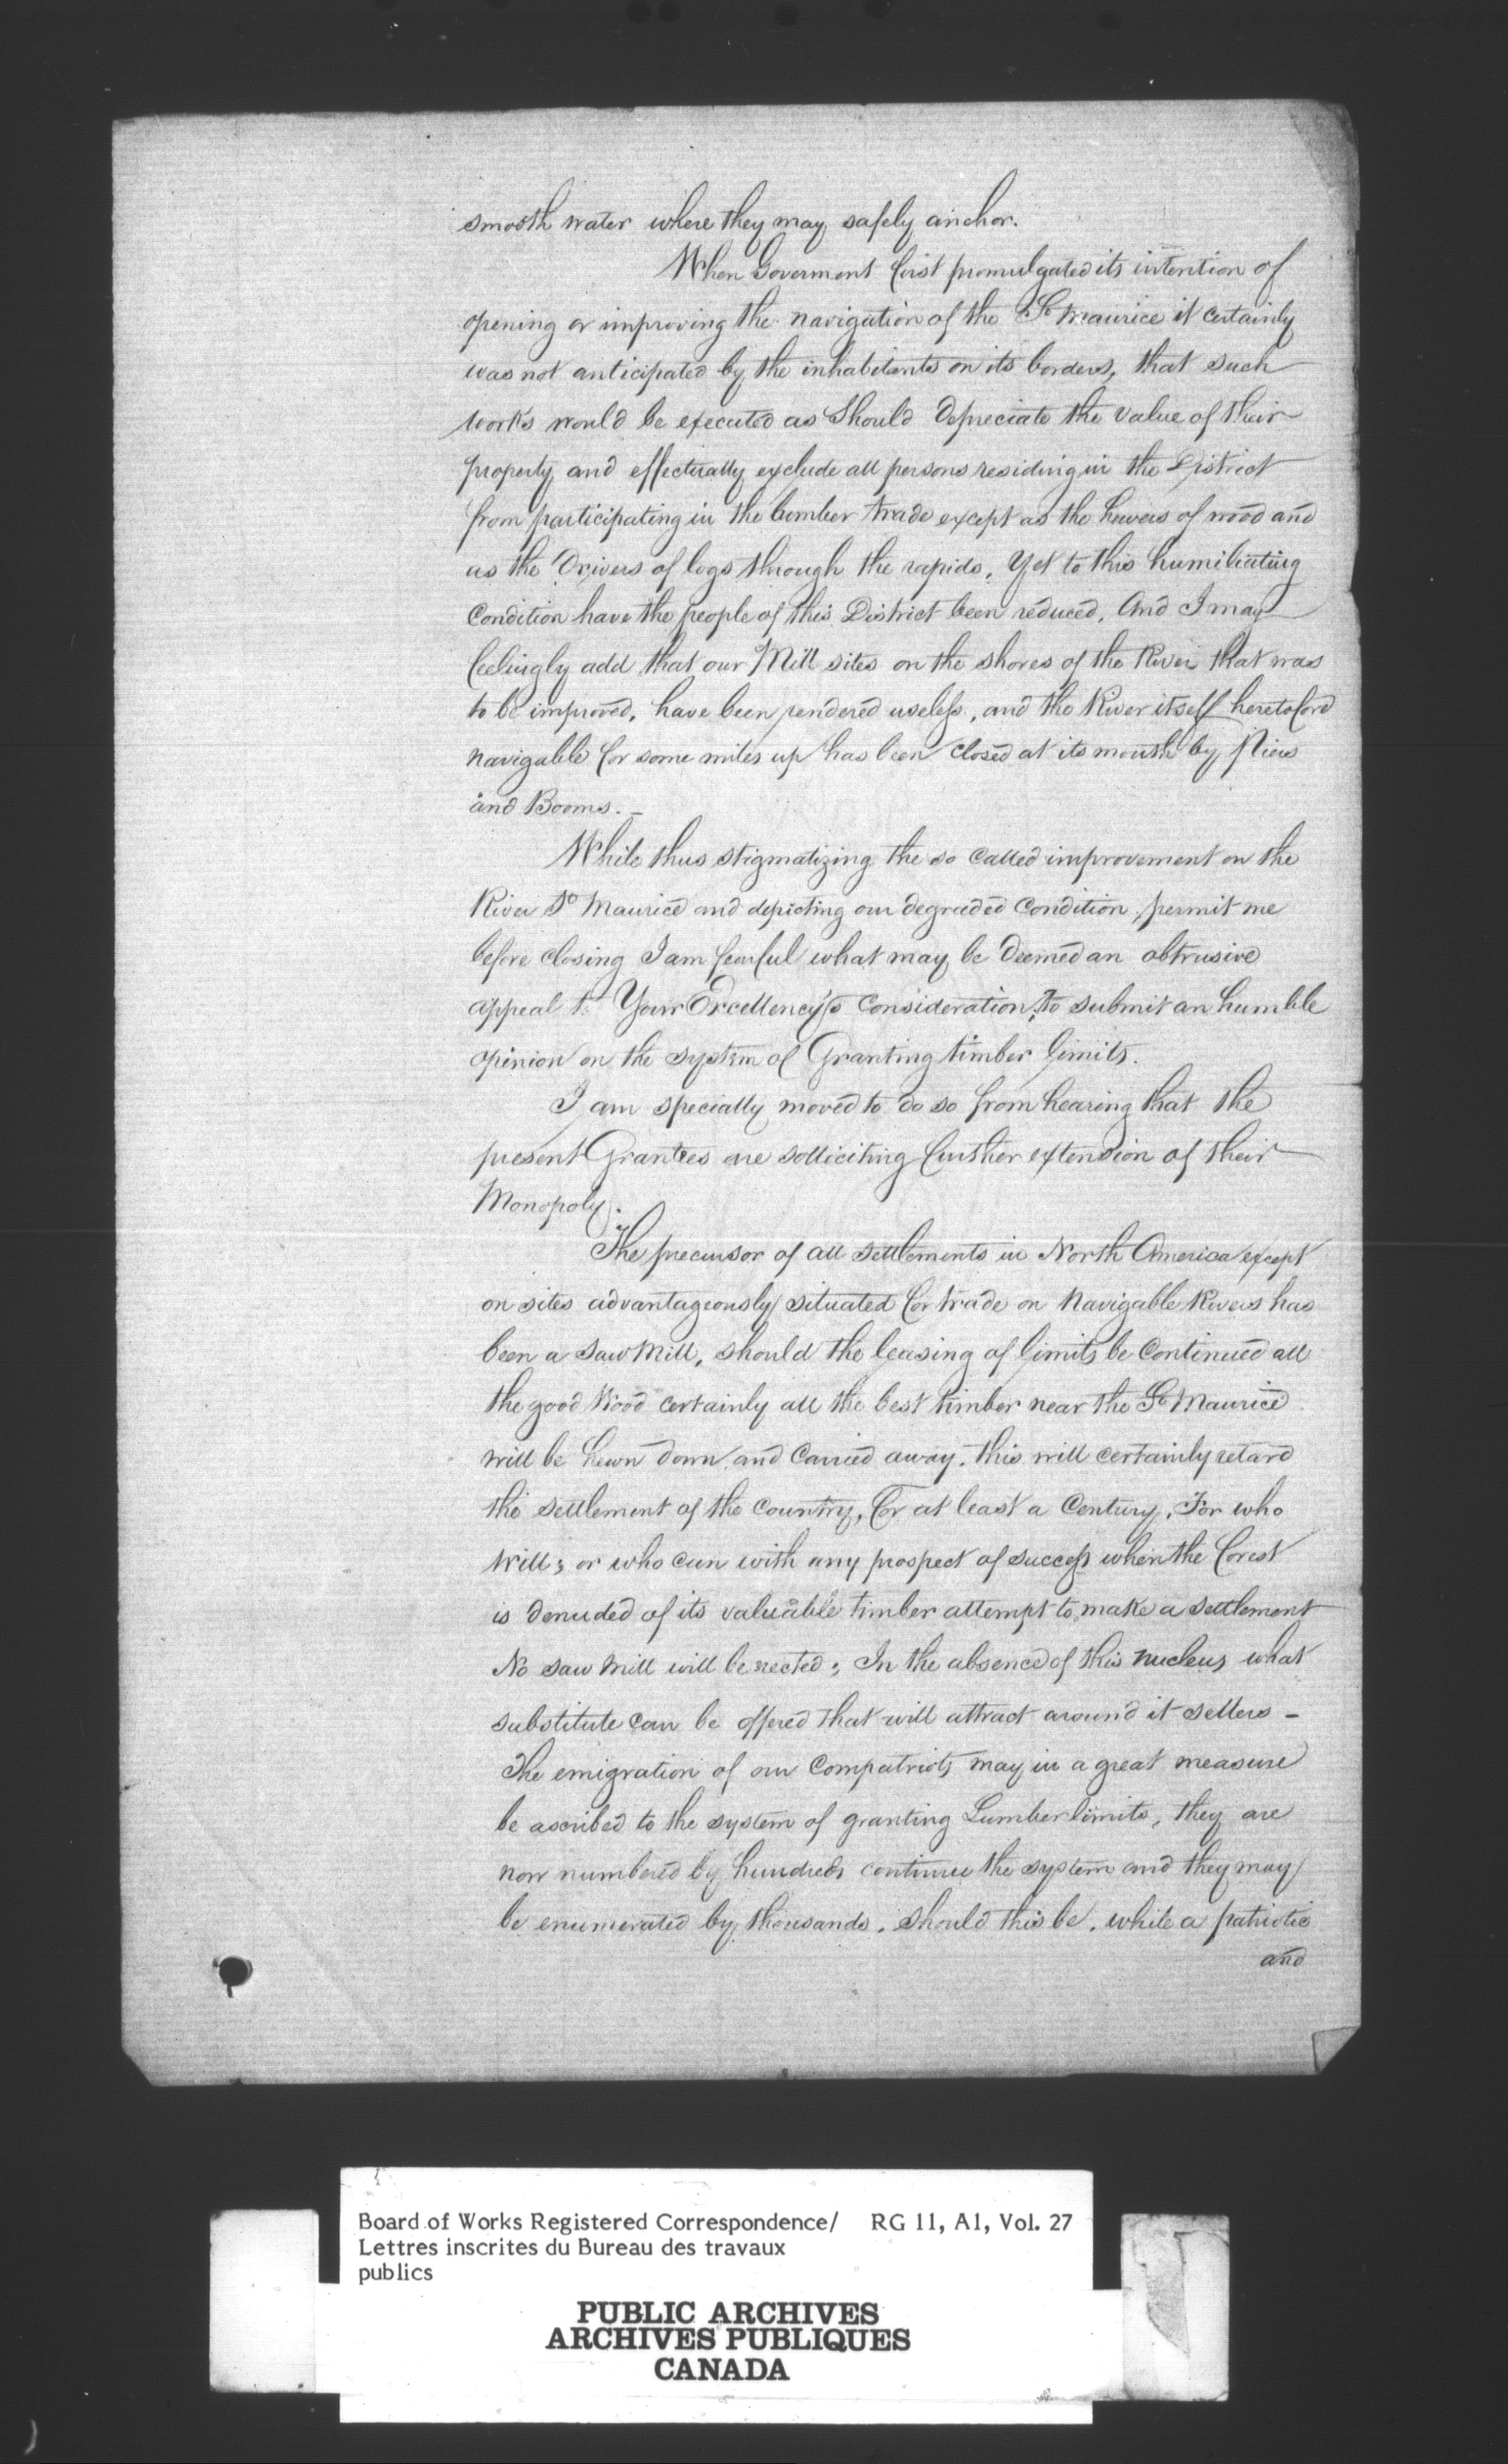 smooth water where they may safely anchor.
When Goverment first promulgated its intention of
opening or improving the navigation of the St Maurice it certainly
was not anticipated by the inhabitants on its borders, that such
works would be executed as should depreciate the value of their
property and effectually exclude all persons residing in the District
from participating in the lumber trade except as the hewers of wood and
as the Drivers of logs through the rapids. Yet to this humiliating
Condition have the people of this District been reduced. And I may
feelingly add that our Mill sites on the shores of the River that was
to be improved, have been rendered useless, and the River itself heretofore
navigable for some miles up has been closed at its mouth by Piers
and Booms. —
While thus stigmatizing the so called improvement on the
River St Maurice and depicting our degraded Condition, permit me
before closing I am fearful what may be deemed an obtrusive
appeal to Your Excellency's Consideration, to submit an humble
opinion on the system of Granting timber limits.
I am specially moved to do so from hearing that the
present Grantees are solliciting further extension of their
Monopoly.
The precursor of all settlements in North America except
on sites advantageously situated for trade on Navigable Rivers has
been a Saw Mill, should the leasing of limits be Continued all
the good Wood certainly all the best timber near the St Maurice
will be hewn down and Carried away. this will certainly retard
the settlement of the Country, for at least a Century. For who
Will; or who can with any prospect of success when the forest
is denuded of its valuable timber attempt to make a settlement
No saw Mill will be rected; In the absence of this nucleus what
substitute can be offered that will attract around it settlers —
The emigration of our Compatriots may in a great measure
be ascribed to the system of granting Lumber limits, they are
now numbered by hundreds continue the system and they may
be enumerated by thousands. Should this be, while a patriotic
and
Board of Works Registered Correspondence/ RG 11, A1, Vol. 27
Lettres inscrites du Bureau des travaux
publics
PUBLIC ARCHIVES
ARCHIVES PUBLIQUES
CANADA